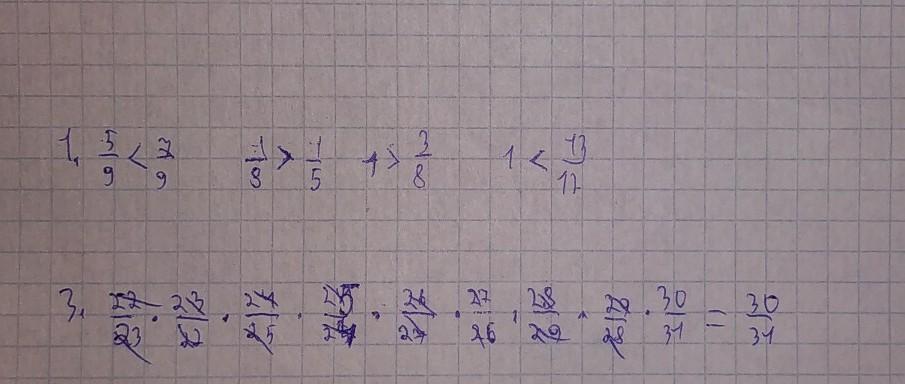 1. 5/9 < 7/9 1/8 > 1/5 1 > 3/8 1 < 13/12
3. 22/23 · 23/22 · 24/25 · 25/24 · 26/27 · 27/26 · 28/29 · 29/28 · 30/31 = 30/31